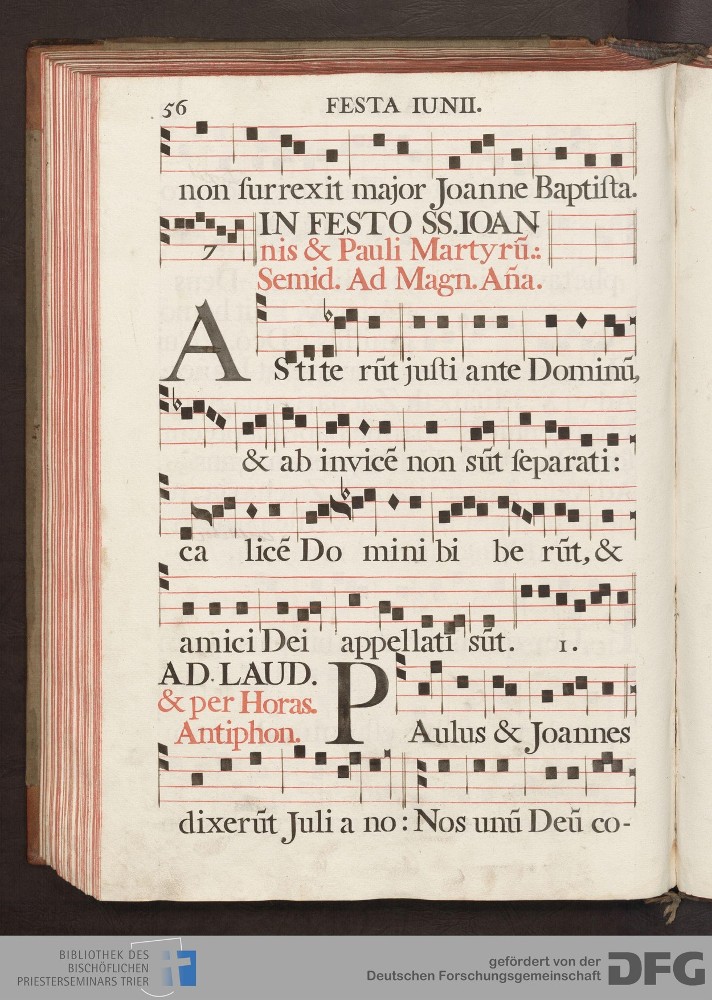 56 FESTA IUNII.
non surrexit major Joanne Baptista.
7 IN FESTO SS. IOAN
nis & Pauli Martyrũ.:
Semid. Ad Magn. Aña.
A Stite rũt justi ante Dominũ,
& ab invicẽ non sũt separati:
ca licẽ Do mini bi be rũt, &
amici Dei appellati sũt. 1.
AD. LAUD.
& per Horas.
Antiphon.
P Aulus & Joannes
dixerũt Juli a no: Nos unũ Deũ co-
BIBLIOTHEK DES
BISCHÖFLICHEN
PRIESTERSEMINARS TRIER
gefördert von der
Deutschen Forschungsgemeinschaft
DFG